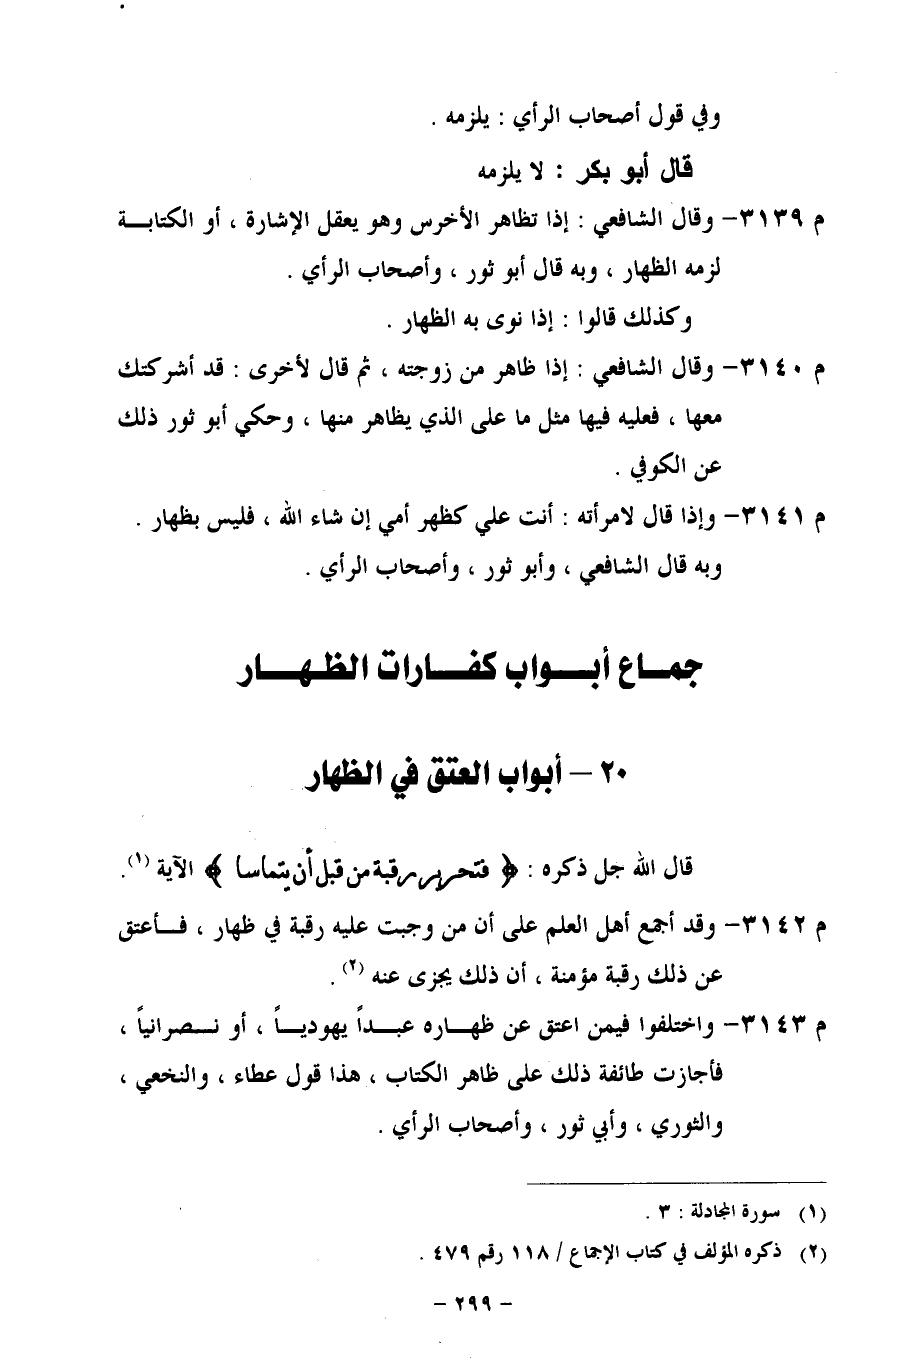 وفي قول أصحاب الرأي : يلزمه .
قال أبو بكر : لا يلزمه
م ٣١٣٩- وقال الشافعي : إذا تظاهر الأخرس وهو يعقل الإشارة ، أو الكتابة
لزمه الظهار ، وبه قال أبو ثور ، وأصحاب الرأي .
وكذلك قالوا : إذا نوى به الظهار .
م ٣١٤٠- وقال الشافعي : إذا ظاهر من زوجته ، ثم قال لأخرى : قد أشركتك
معها ، فعليه فيها مثل ما على الذي يظاهر منها ، وحكي أبو ثور ذلك
عن الكوفي .
م ٣١٤١- وإذا قال لامرأته : أنت علي كظهر أمي إن شاء الله ، فليس بظهار .
وبه قال الشافعي ، وأبو ثور ، وأصحاب الرأي .
جماع أبواب كفارات الظهار
٢٠ - أبواب العتق في الظهار
قال الله جل ذكره : ﴿ فتحرير رقبة من قبل أن يتماسا ﴾ الآية (١).
م ٣١٤٢- وقد أجمع أهل العلم على أن من وجبت عليه رقبة في ظهار ، فأعتق
عن ذلك رقبة مؤمنة ، أن ذلك يجزى عنه (٢) .
م ٣١٤٣- واختلفوا فيمن اعتق عن ظهاره عبداً يهودياً ، أو نصرانياً ،
فأجازت طائفة ذلك على ظاهر الكتاب ، هذا قول عطاء ، والنخعي ،
والثوري ، وأبي ثور ، وأصحاب الرأي .
(١) سورة المجادلة : ٣ .
(٢) ذكره المؤلف في كتاب الإجماع / ١١٨ رقم ٤٧٩ .
- ٢٩٩ -